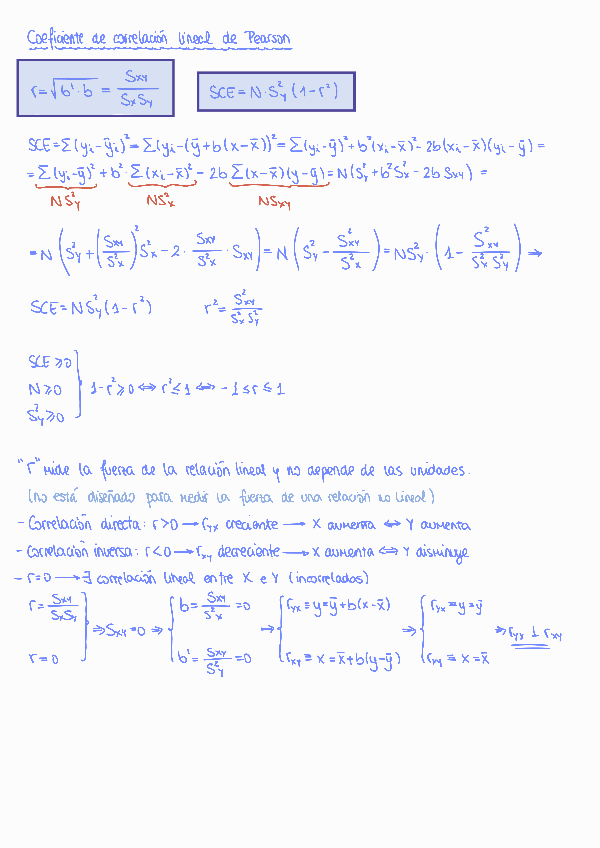 Coeficiente de correlación lineal de Pearson
r = √(b'·b) = Sxy / (Sx Sy)    SCE = N·S²y (1-r²)
SCE = Σ(yi - ȳi)² = Σ(yi - (ȳ + b(x - x̄))² = Σ(yi - ȳ)² + b²(xi - x̄)² - 2b(xi - x̄)(yi - ȳ) =
= Σ(yi - ȳ)² + b²·Σ(xi - x̄)² - 2b Σ(x - x̄)(y - ȳ) = N(S²y + b²S²x - 2b Sxy) =
NS²y    NS²x    NSxy
= N (S²y + (Sxy/S²x)² S²x - 2· Sxy/S²x · Sxy) = N (S²y - S²xy/S²x) = NS²y · (1 - S²xy/(S²x S²y)) →
SCE = N S²y (1 - r²)    r² = S²xy / (S²x S²y)
SCE ≥ 0
N ≥ 0    1 - r² ≥ 0 ⇔ r² ≤ 1 ⇔ -1 ≤ r ≤ 1
S²y ≥ 0
"r" mide la fuerza de la relación lineal y no depende de las unidades.
(no está diseñado para medir la fuerza de una relación no lineal)
- Correlación directa: r > 0 → ryx creciente → X aumenta ⇔ Y aumenta
- Correlación inversa: r < 0 → rxy decreciente → X aumenta ⇔ Y disminuye
- r = 0 → ∃ correlación lineal entre X e Y (incorrelados)
r = Sxy / (Sx Sy)    ⇒ Sxy = 0 ⇒    b = Sxy/S²x = 0    →    ryx ≡ y = ȳ + b(x - x̄)    ⇒    ryx ≡ y = ȳ    ⇒ ryx ⊥ rxy
r = 0    b' = Sxy/S²y = 0    rxy ≡ x = x̄ + b(y - ȳ)    rxy ≡ x = x̄